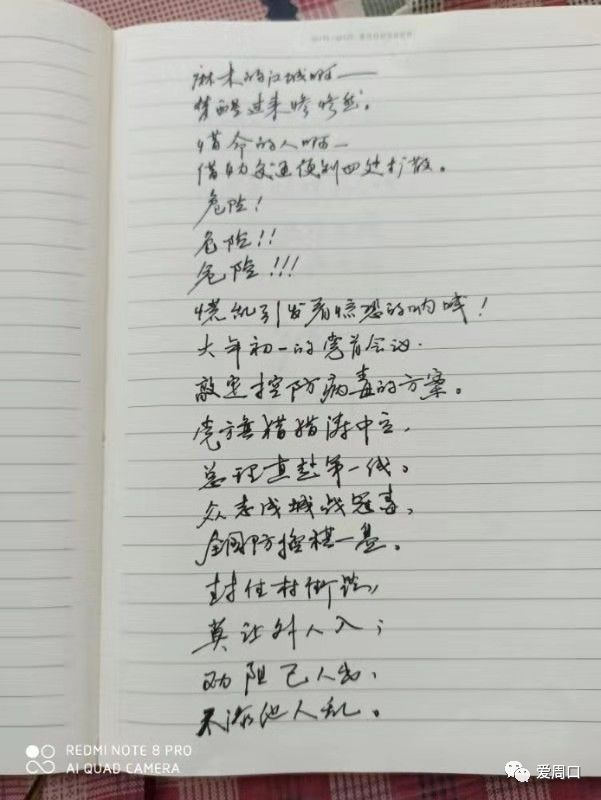 麻木的江城啊——
梦醒过来惨惨然。
惜命的人啊—
借助交通便利四处扩散。
危险!
危险!!
危险!!!
慌乱引发着惊恐的呐喊!
大年初一的常委会议.
敲定控防病毒的方案。
党旗猎猎涛中立,
总理直赴第一线。
众志成城战冠毒,
全国防控棋一盘。
封住村街路,
莫让外人入;
劝阻己人出,
不添他人乱。
REDMI NOTE 8 PRO
AI QUAD CAMERA
爱周口